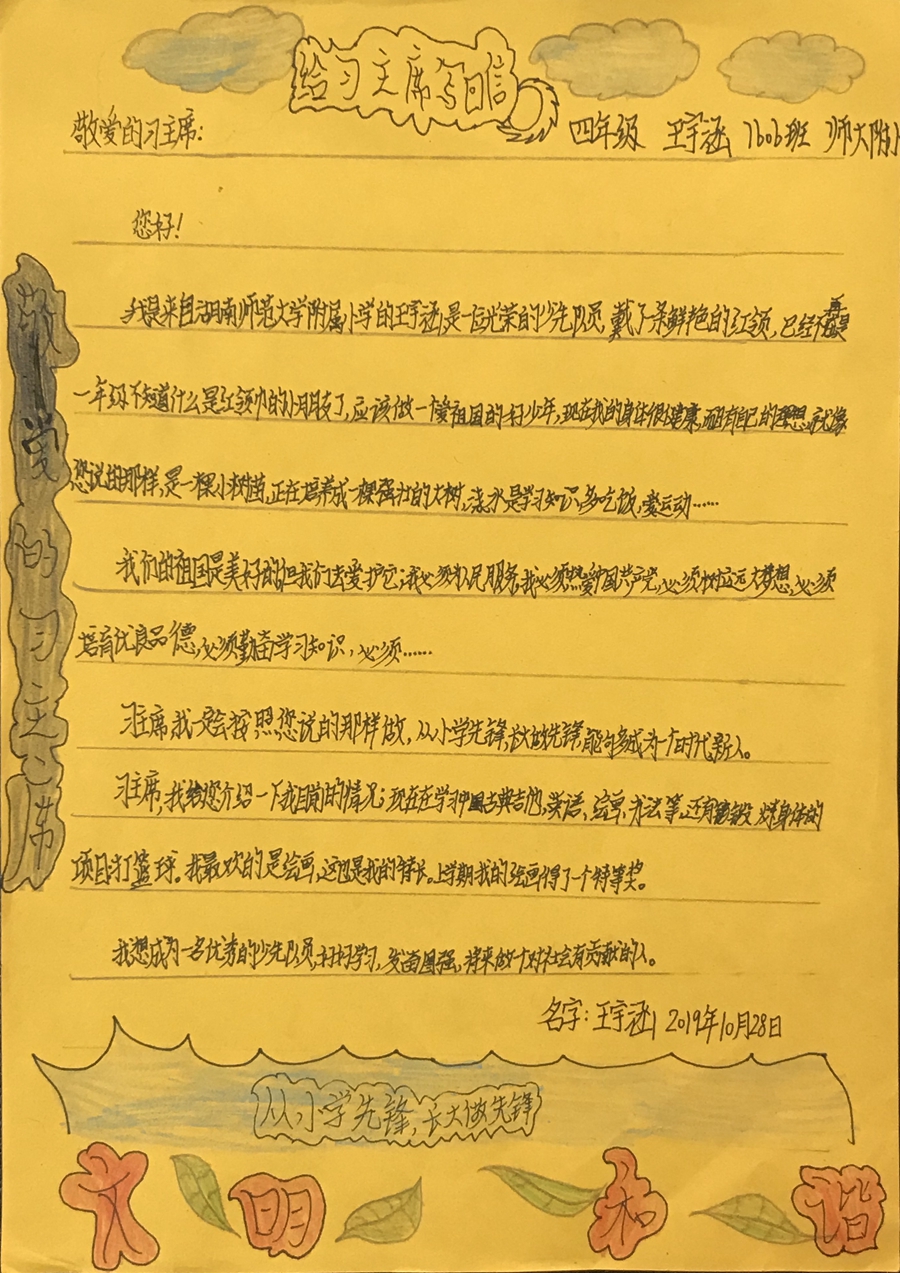 给习主席写日信
敬爱的习主席:
四年级 王宇涵 1606班 师大附小
您好!
我是来自湖南师范大学附属小学的王宇涵,是一位光荣的少先队员,戴了条鲜艳的红领,已经不再是
一年级不知道什么是红领巾的小朋友了,应该做一个爱祖国的好少年,现在我的身体很健康,而且有自己的理想,就像
您说的那样,是一棵小树苗,正在培养成一棵强壮的大树,浇水是学习知识,多吃饭,爱运动……
我们的祖国是美好的,但我们去爱护它,我必须为人民服务,我必须热爱中国共产党,必须树立远大梦想,必须
培育优良品德,必须勤奋学习知识,必须……
习主席,我一定会按照您说的那样做,从小学先锋,长大做先锋,能够多成为一个时代新人。
习主席,我给您介绍一下我目前的情况;现在在学习中国古典吉他,英语、绘画、书法等,还有锻炼身体的
项目:打篮球。我最欢的是绘画,这也是我的特长。上学期我的绘画得了一个特等奖。
我想成为一名优秀的少先队员,好好学习,发奋图强,将来做个对社会有贡献的人。
名字:王宇涵 2019年10月28日
敬爱的习主席
从小学先锋,长大做先锋
文明 和谐